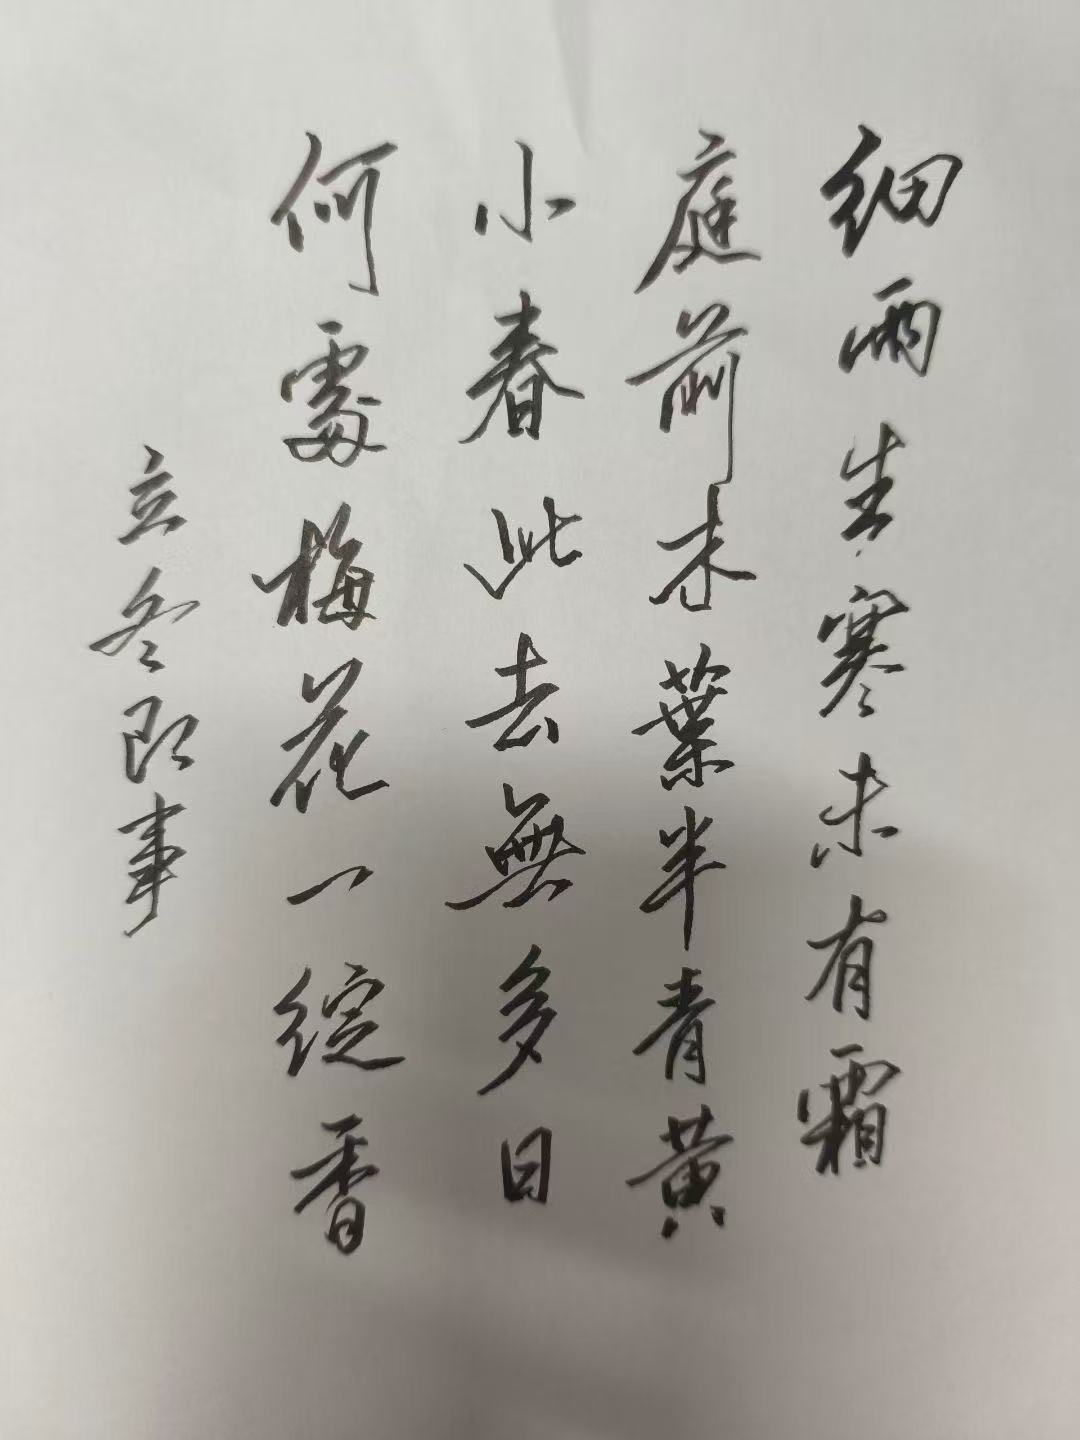 細雨生寒未有霜
庭前木葉半青黄
小春此去無多日
何處梅花一綻香
立冬即事